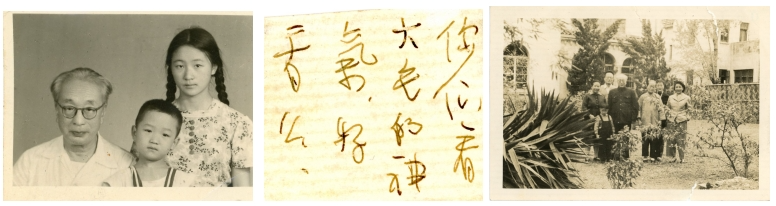 你们看
大毛的神
氣、好
看么、